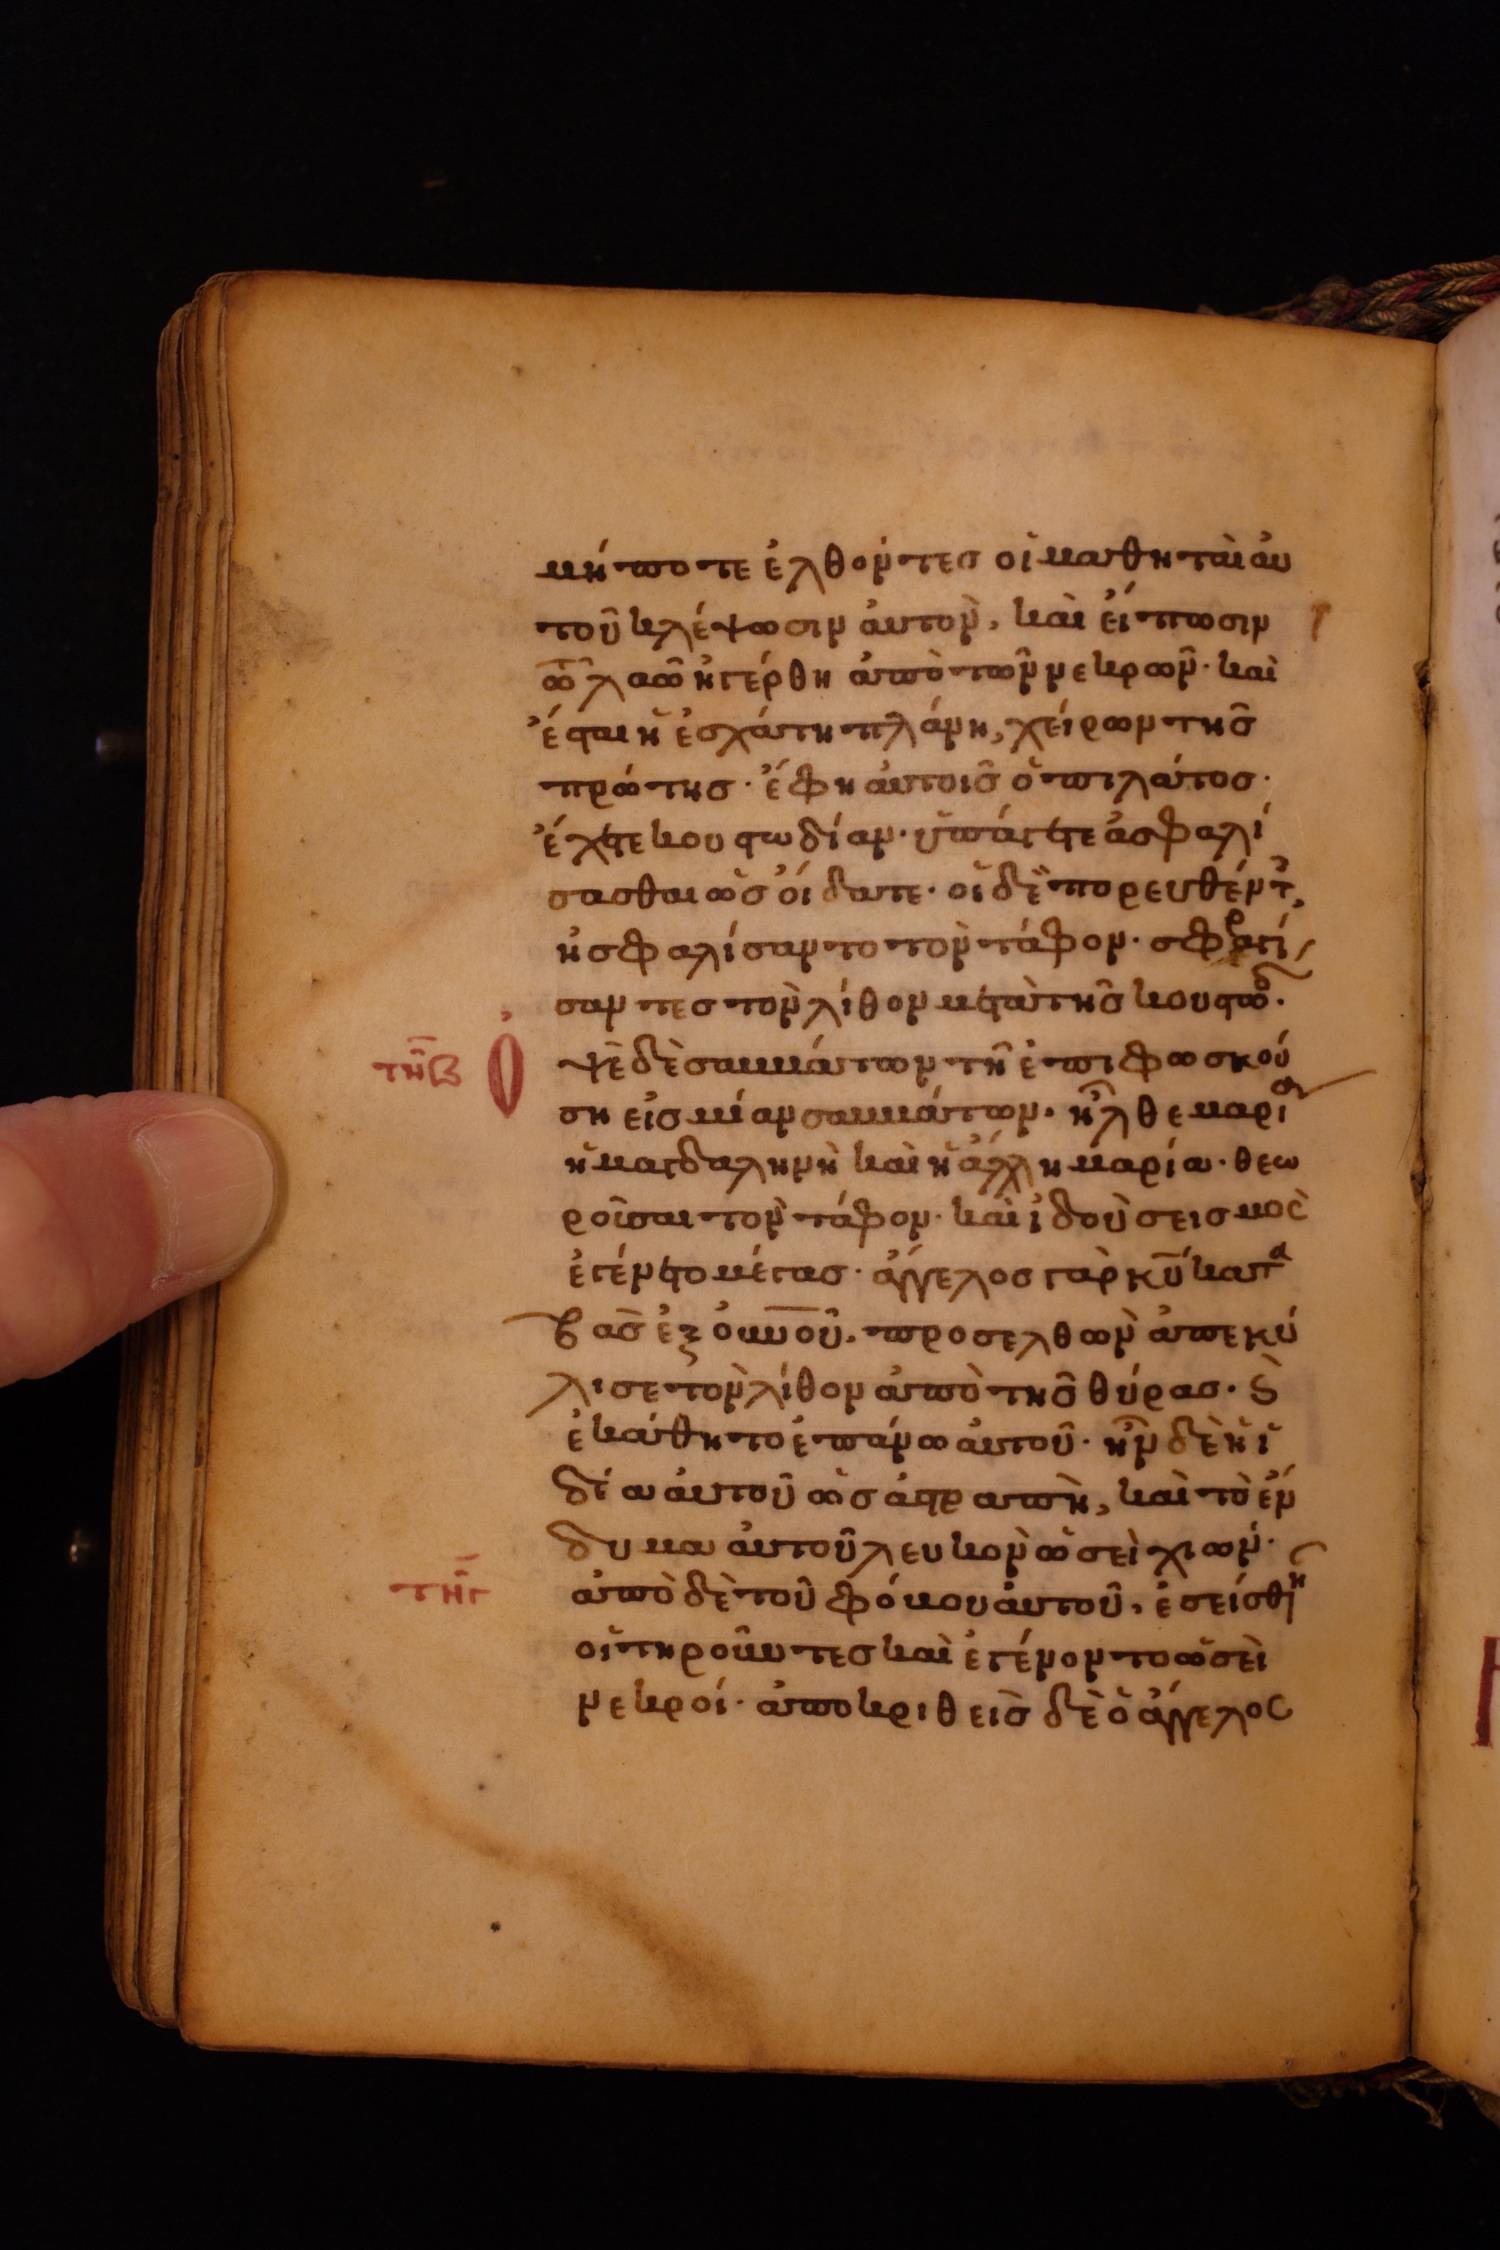 μήποτε ἐλθόντεσ οἱ μαθηταὶ ἀυ
τοῦ κλέψωσιν ἀυτὸν, καὶ εἴπωσιν
τῶ λαῶ ἠγέρθη ἀπὸ τῶν νεκρῶν· καὶ
ἔσται ἡ ἐσχάτη πλάνη, χείρων τῆσ
πρώτησ· ἔφη ἀυτοῖσ ὁ πιλάτοσ·
ἔχετε κουστωδίαν· ὑπάγετε ἀσφαλί
σασθαι ὡσ οἴδατε· οἱ δὲ πορευθέντ,
ἠσφαλίσαντο τὸν τάφον· σφραγί
σαντεσ τὸν λίθον μετὰ τῆσ κουστωδ·
τῆ β Ὀ ψὲ δὲ σαββάτων τῆ ἐπιφωσκού
ση εἰσ μίαν σαββάτων· ἦλθε μαρία
ἡ μαγδαληνὴ καὶ ἡ ἄλλη μαρία· θεω
ροῖσαι τὸν τάφον· καὶ ἰδοὺ σεισμὸσ
ἐγένετο μέγασ· ἄγγελοσ γὰρ κυ κατα
βὰσ ἐξ οὐνοῦ, προσελθὼν ἀπεκύ
λισε τὸν λίθον ἀπὸ τῆσ θύρασ· ϗ
ἐκάθητο ἐπάνω ἀυτοῦ· ἦν δὲ ἡ ἰ
δέα ἀυτοῦ ὡσ ἀστραπὴ, καὶ τὸ ἔν
δυμα ἀυτοῦ λευκὸν ὡσεὶ χιών·
τῆ γ ἀπὸ δὲ τοῦ φόβου ἀυτοῦ, ἐσείσθη
οἱ τηροῦντεσ καὶ ἐγένοντο ὡσεὶ
νεκροί· ἀποκριθεὶσ δὲ ὁ ἄγγελοσ